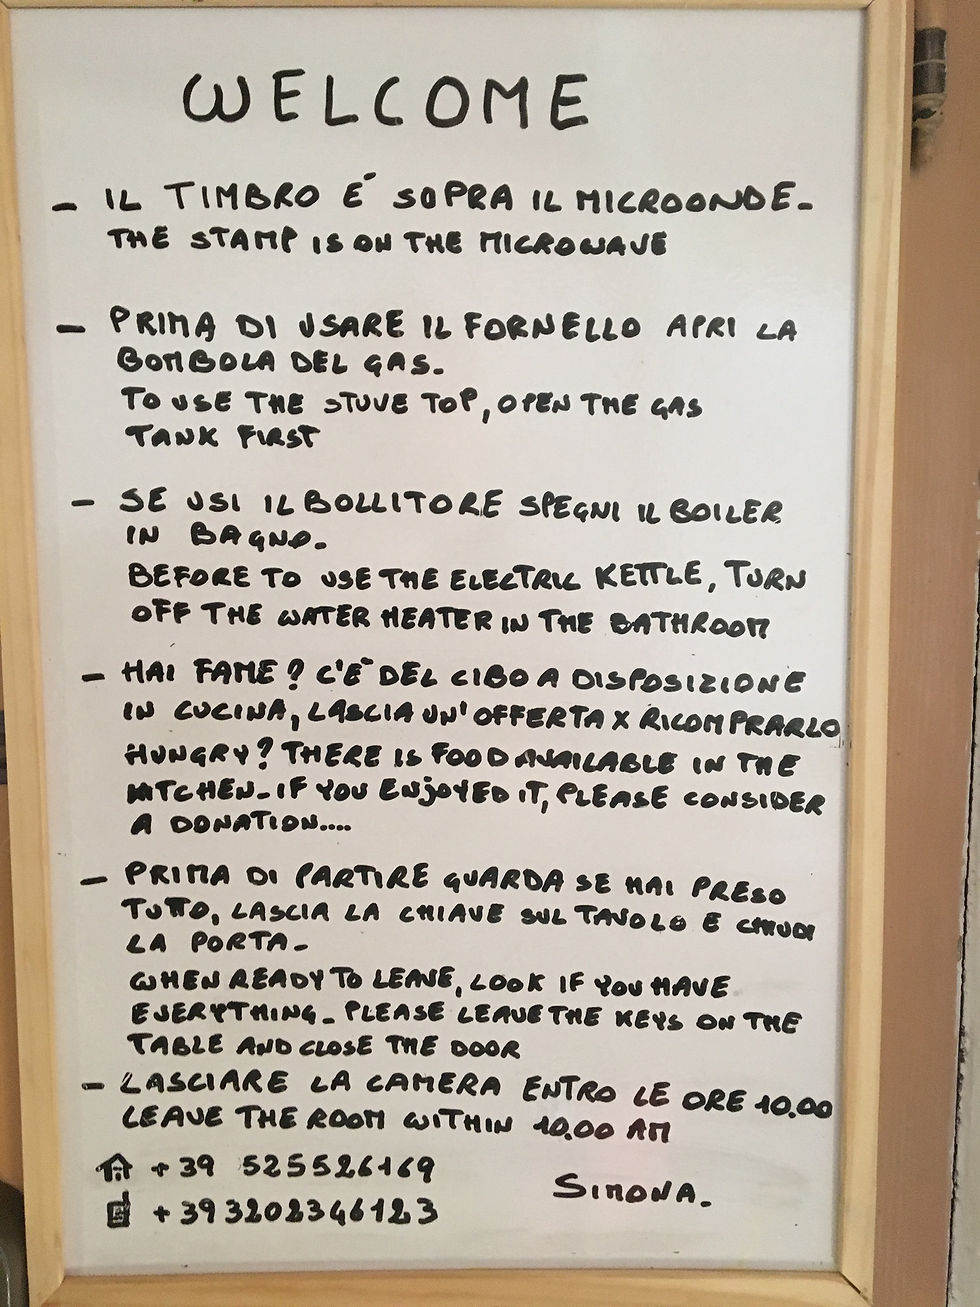 WELCOME
- IL TIMBRO É SOPRA IL MICROONDE-
THE STAMP IS ON THE MICROWAVE
- PRIMA DI USARE IL FORNELLO APRI LA
BOMBOLA DEL GAS.
TO USE THE STUVE TOP, OPEN THE GAS
TANK FIRST
- SE USI IL BOLLITORE SPEGNI IL BOILER
IN BAGNO.
BEFORE TO USE THE ELECTRIC KETTLE, TURN
OFF THE WATER HEATER IN THE BATHROOM
- HAI FAME? C'È DEL CIBO A DISPOSIZIONE
IN CUCINA, LASCIA UN'OFFERTA X RICOMPRARLO
HUNGRY? THERE IS FOOD AVAILABLE IN THE
KITCHEN-IF YOU ENJOYED IT, PLEASE CONSIDER
A DONATION....
- PRIMA DI PARTIRE GUARDA SE HAI PRESO
TUTTO, LASCIA LA CHIAVE SUL TAVOLO E CHIUDI
LA PORTA-
WHEN READY TO LEAVE, LOOK IF YOU HAVE
EVERYTHING- PLEASE LEAVE THE KEYS ON THE
TABLE AND CLOSE THE DOOR
- LASCIARE LA CAMERA ENTRO LE ORE 10.00
LEAVE THE ROOM WITHIN 10.00 AM
+39 525526169
SIMONA.
+393202346123